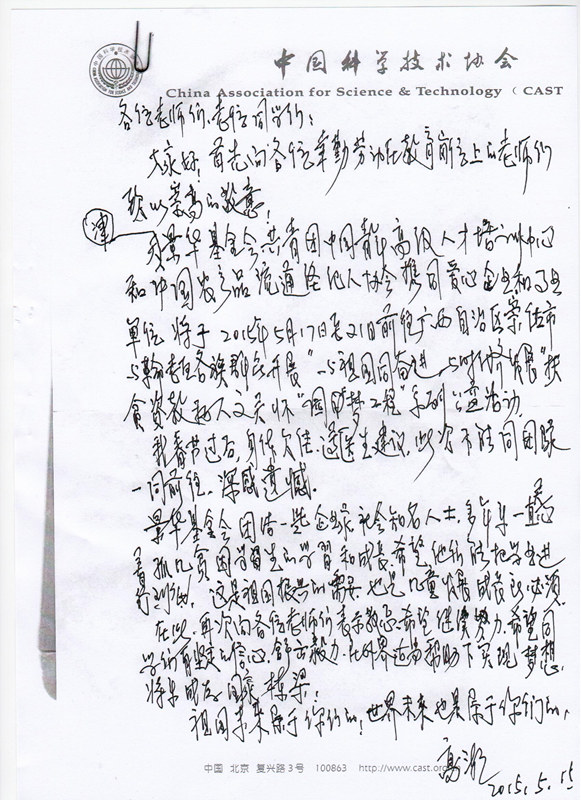 中国科学技术协会
China Association for Science & Technology ( CAST
各位老师们、老位同学们：
大家好！首先向各位辛勤劳动在教育岗位上的老师们
致以崇高的敬意！
景华基金会共青团中国青年高级人才培训中心
和中国农产品流通经纪人协会携同爱心企业和事业
单位将于2015年5月17日至21日前往广西自治区崇左市
与各族群众开展“与祖国同奋进、与时代齐发展”扶
贫资教 人文关怀“圆中国梦工程”系列公益活动
我春节过后，身体欠佳，遵医生建议，此次不能同团队
一同前往，深感遗憾。
景华基金会团结一些企业家社会知名人士，多年来一直
孤儿贫困学习生的学习和成长，希望他们能把学业进
行到底，这是祖国振兴的需要，也是儿童发展成长的必须。
在此，再次向各位老师们表示敬意，希望继续努力，希望同
学们有坚定信心，毅力，在外界 帮助下实现梦想，
将早成为国家栋梁！
祖国未来属于你们的，世界未来也是属于你们的，
2015.5.15
中国 北京 复兴路3号 100863 http://www.cast.org